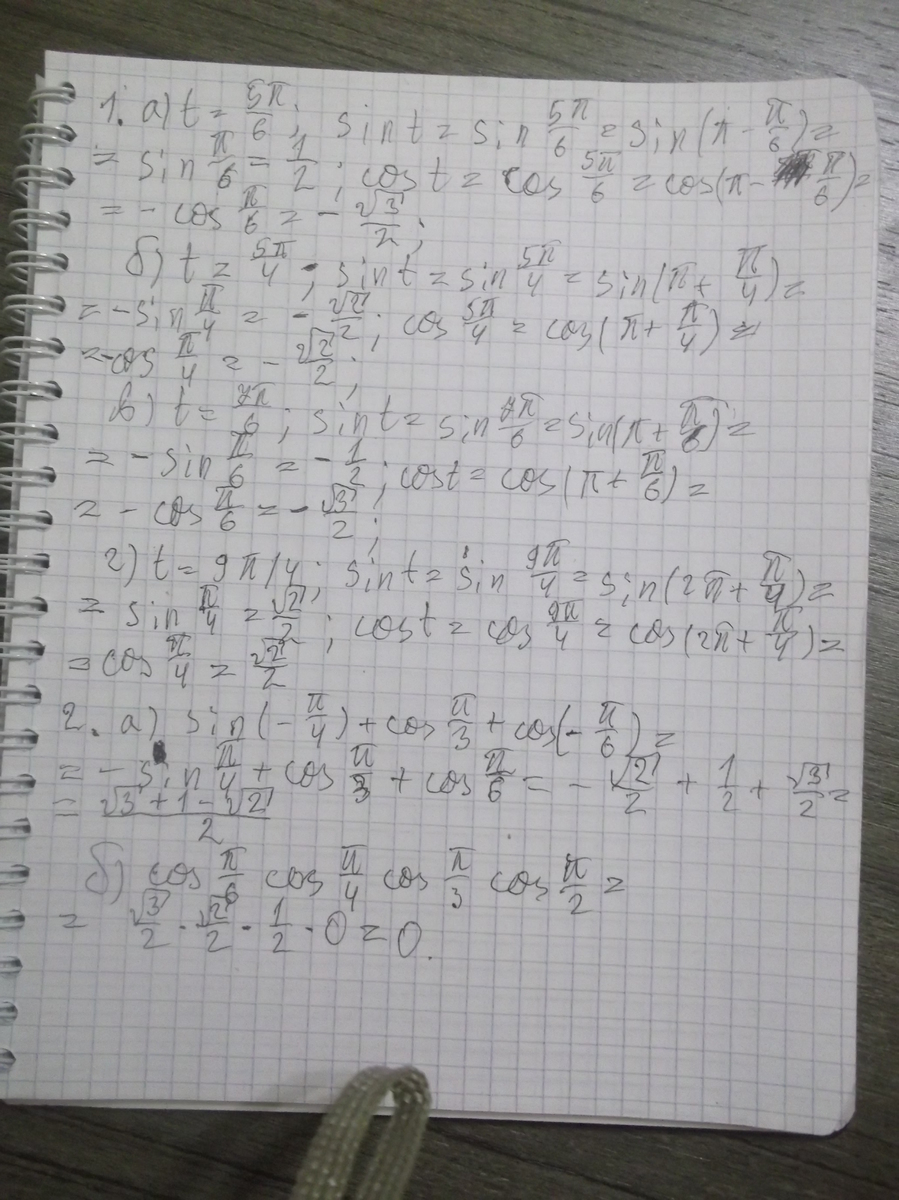 1. а) t = 5π/6; sin t = sin 5π/6 = sin(π - π/6) =
= sin π/6 = 1/2; cos t = cos 5π/6 = cos(π - π/6) =
= - cos π/6 = - √3/2;
б) t = 5π/4; sin t = sin 5π/4 = sin(π + π/4) =
= - sin π/4 = - √2/2; cos 5π/4 = cos(π + π/4) =
= -cos π/4 = - √2/2;
в) t = 7π/6; sin t = sin 7π/6 = sin(π + π/6) =
= - sin π/6 = - 1/2; cos t = cos(π + π/6) =
= - cos π/6 = - √3/2;
г) t = 9π/4; sin t = sin 9π/4 = sin(2π + π/4) =
= sin π/4 = √2/2; cos t = cos 9π/4 = cos(2π + π/4) =
= cos π/4 = √2/2
2. а) sin(- π/4) + cos π/3 + cos(- π/6) =
= - sin π/4 + cos π/3 + cos π/6 = - √2/2 + 1/2 + √3/2 =
= (√3 + 1 - √2)/2
б) cos π/6 cos π/4 cos π/3 cos π/2 =
= √3/2 · √2/2 · 1/2 · 0 = 0.